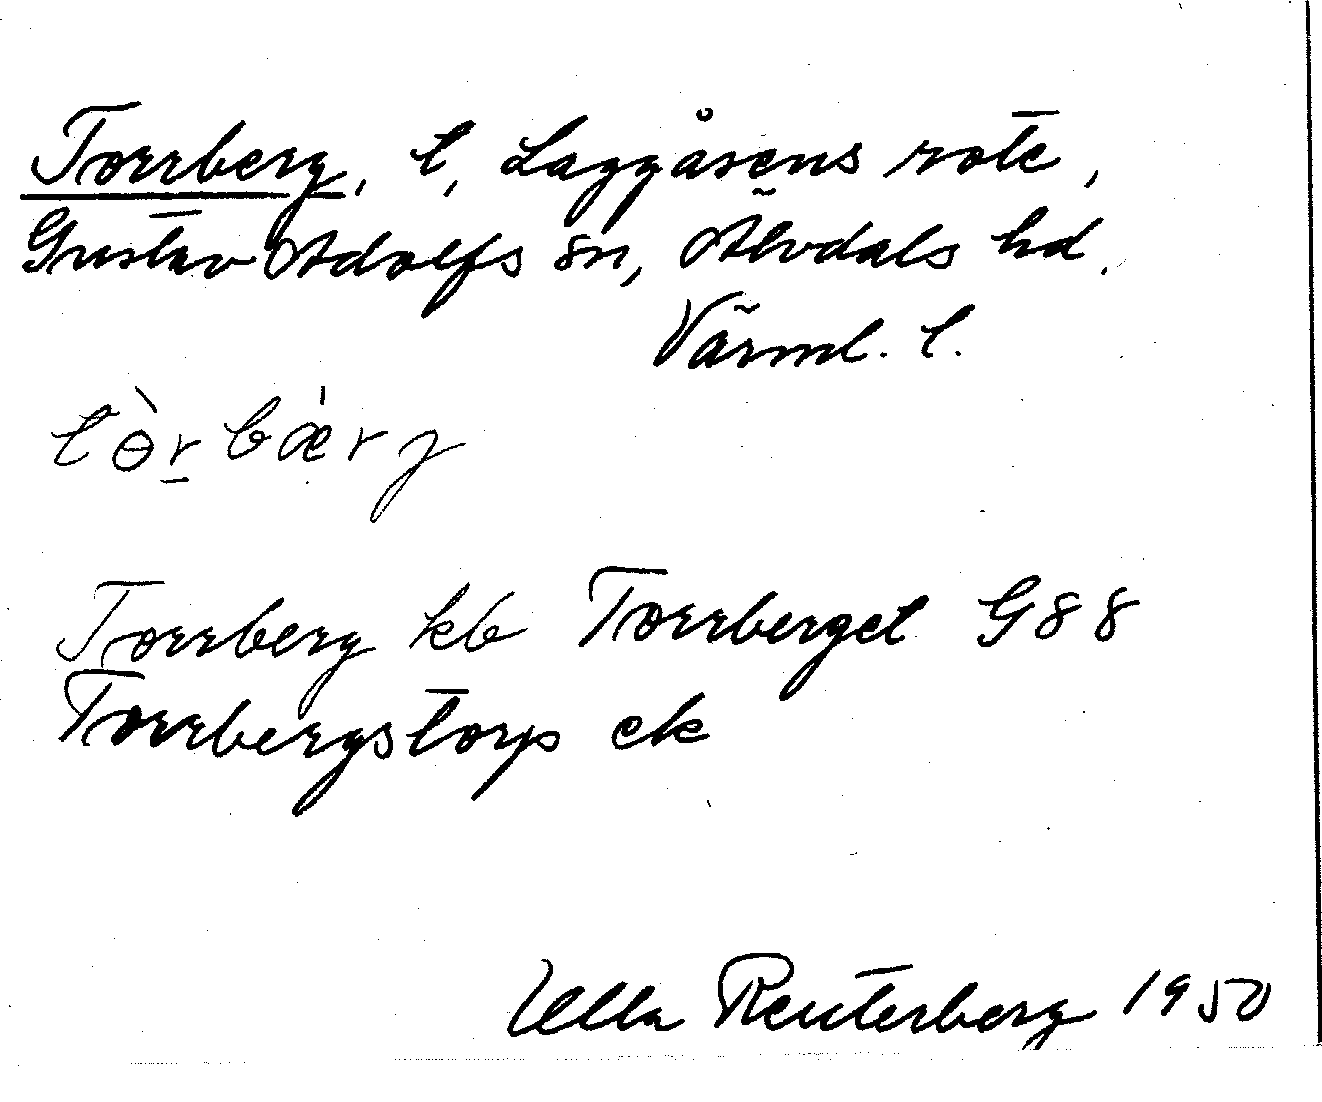 Torrberg, t, Laggåsens rote,
Gustav Adolfs sn, Älvdals hd.
Värml. l.
tɵ̀r̠bǽrj
Torrberg kb Torrberget G88
Torrbergstorp ek
Ulla Reuterberg 1950